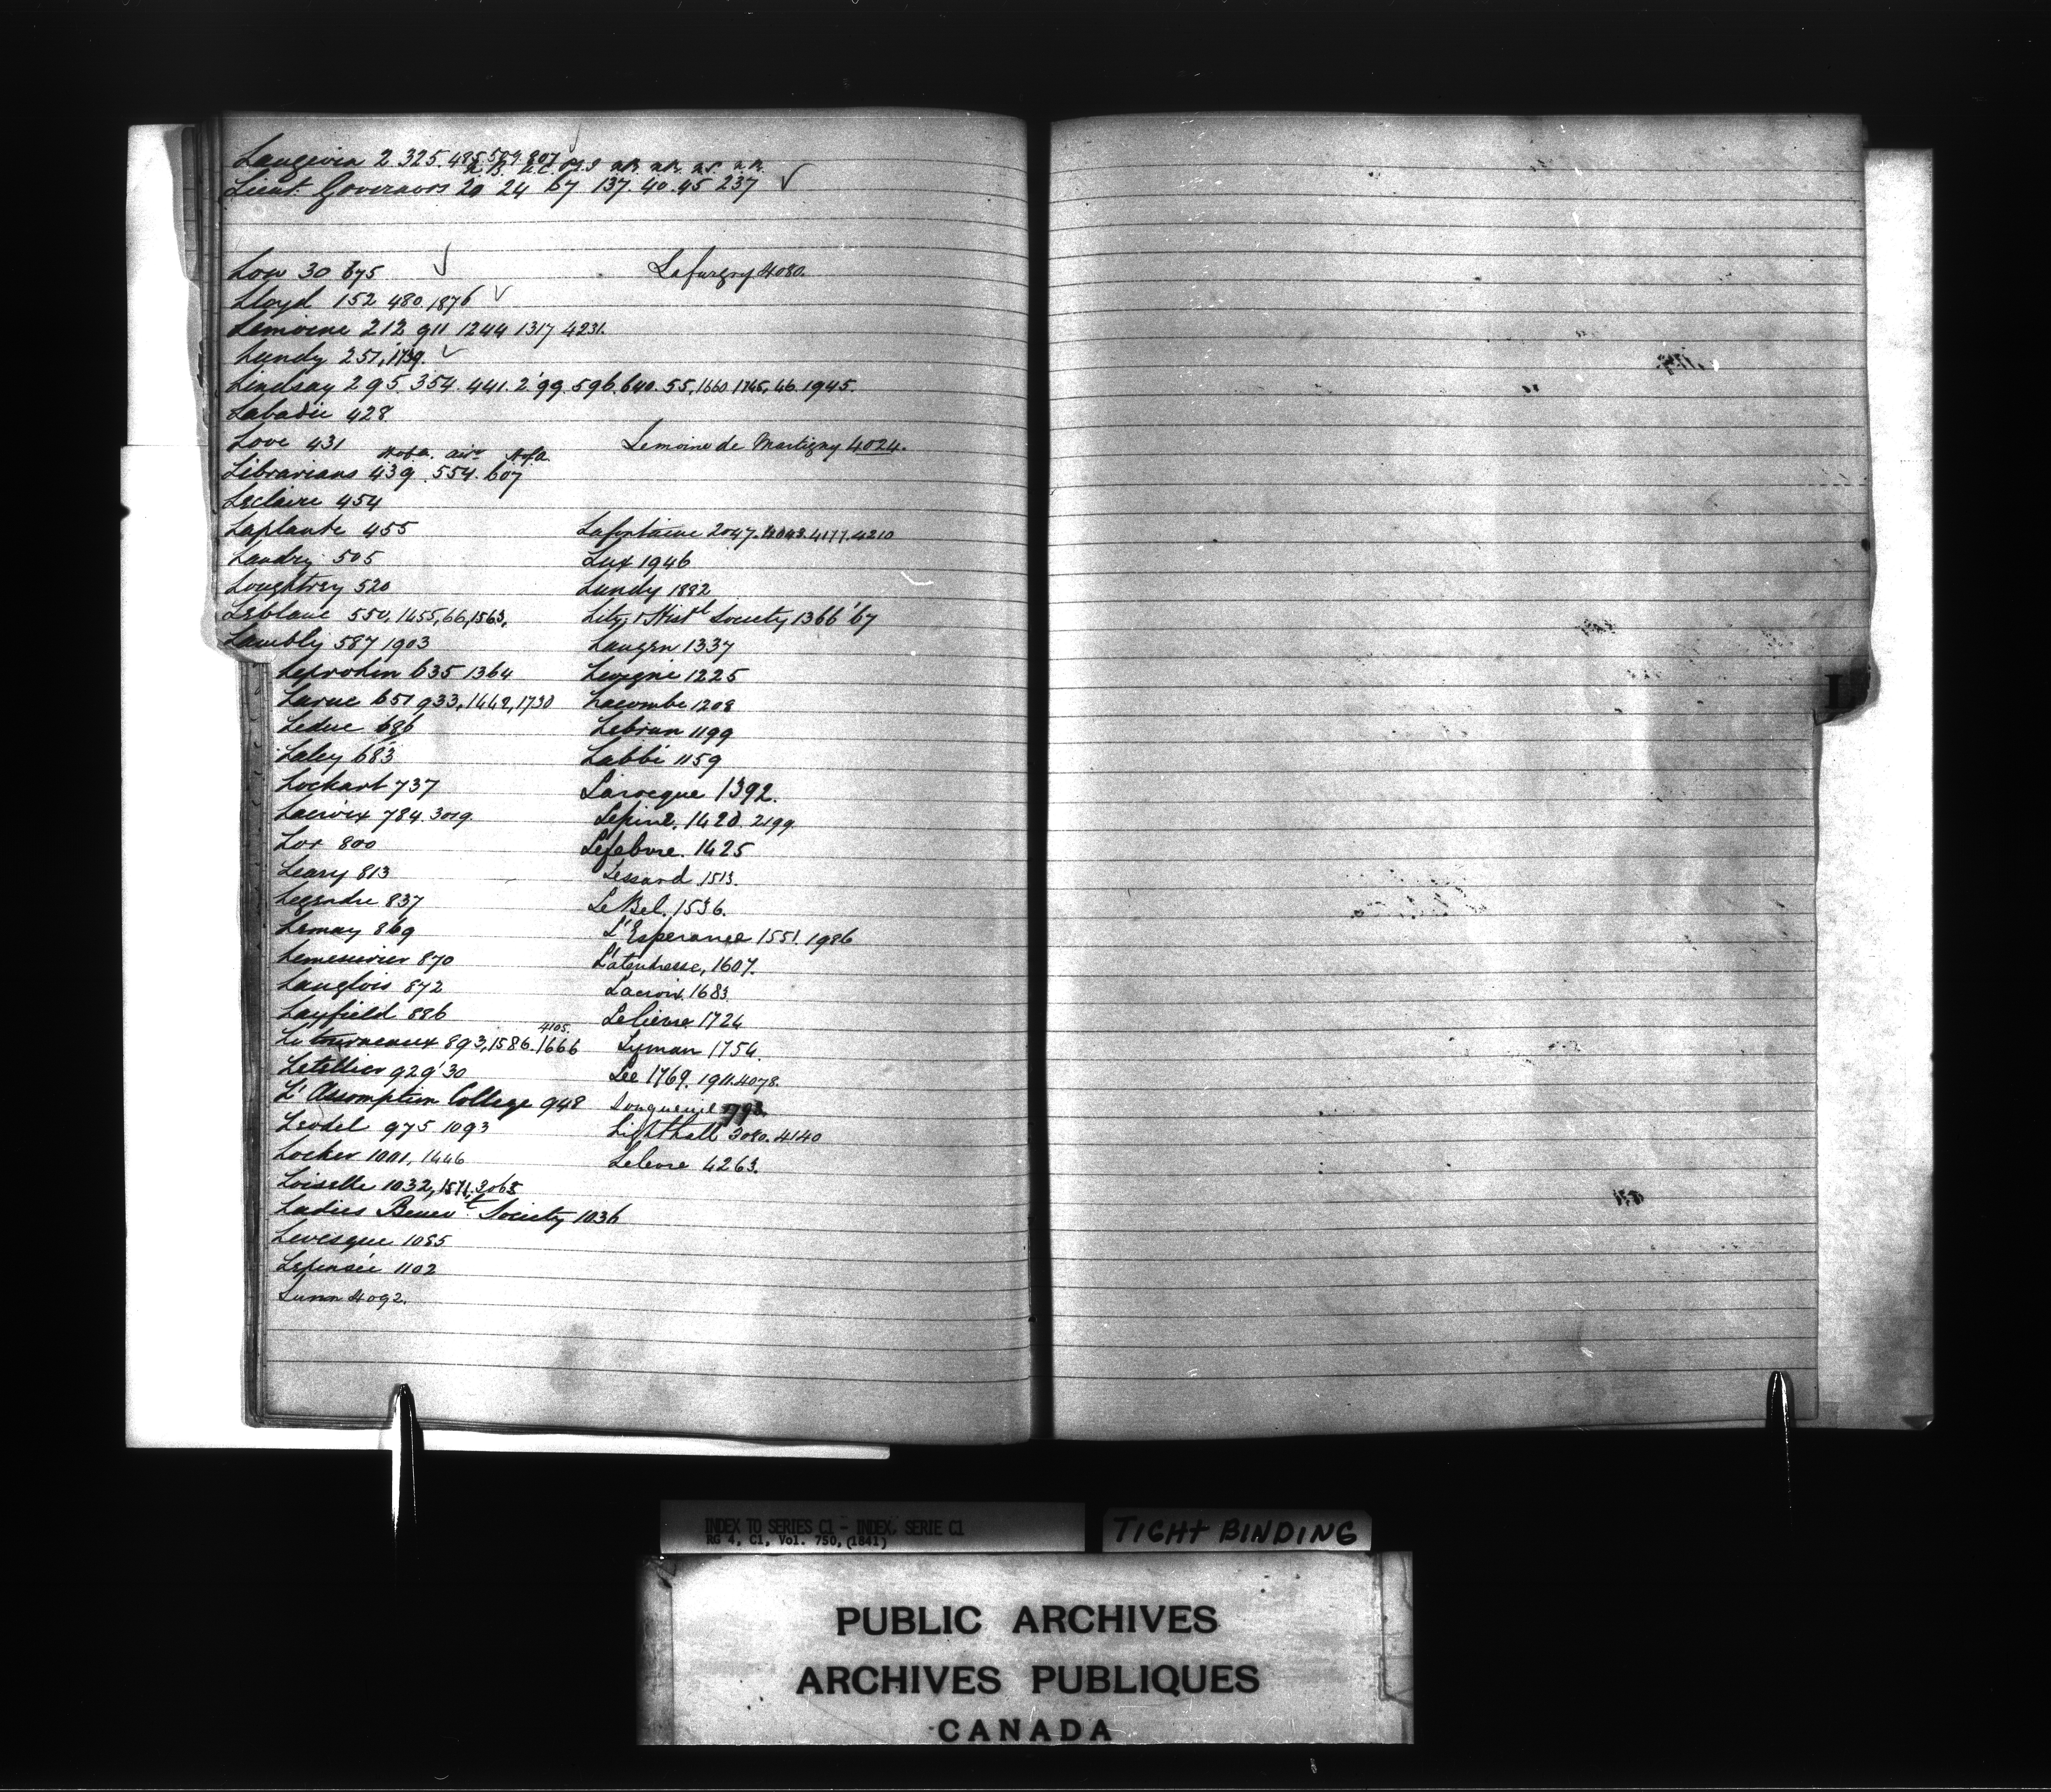 Langevin 2. 325. 485. 509. 807
Lieut. Governors 20 24 67 137 40. 45 237
Low 30 675
Lafurgey 4080.
Lloyd 152 480. 1876
Lemoine 212 911 1244 1317 4231.
Lundy 251, 1739.
Lindsay 295. 354. 441. 2'99. 596. 640. 55, 1660 1745, 46. 1945.
Labadie 428
Love 431
Lemoine de Martigny 4024.
H of A. H of A.
Librarians 439. 554. 607
Leclaire 454
Laplante 455
Lafontaine 2047. 4177. 4210
Landry 505
Lux 1946
Loughtrey 520
Lundy 1882
Leblanc 554, 1455, 66, 1563,
Lity. & Histl Society 1366 '67
Lambly 587 1903
Laugen 1337
Leprohon 635 1364
Levigne 1225
Larue 651 933, 1442, 1730
Lacombe 1208
Leduc 686
Lebrun 1199
Laley 683
Labbé 1159
Lockart 737
Larocque 1392.
Lacroix 784. 3019.
Lepine. 1420. 2199.
Lor 800
Lefebvre. 1425
Leary 813
Lessard 1513.
Legendre 837
LeBel. 1536.
Lemay 869
L'Esperance 1551. 1986
Lemesurier 870
Latendresse, 1607.
Langlois 872
Lacroix 1683.
Layfield 886
Lelievre 1724
4105.
Letourneaux 893, 1586. 1666
Lyman 1754.
Letellier 929' 30
Lee 1769. 1911. 4078.
L'Assomption College 948
Longueuil
Leodel 975 1093
Lighthall 3080. 4140
Locker 1001, 1446
Lelevre 4263.
Loiselle 1032, 1571, 3065
Ladies Benevt Society 1036
Levesque 1085
Lepensée 1102
Lunn 4092.
L
INDEX TO SERIES C1 - INDEX, SERIE C1
RG 4, C1, Vol. 750, (1841)
TIGHT BINDING
PUBLIC ARCHIVES
ARCHIVES PUBLIQUES
CANADA